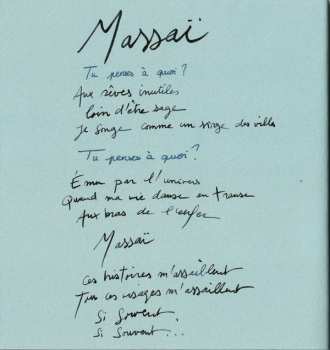 Massaï
Tu penses à quoi ?
Aux rêves inutiles
loin d'être sage
Je songe comme un singe des villes
Tu penses à quoi ?
Émue par l'univers
Quand ma vie danse en transe
Aux bras de l'enfer
Massaï
Ces histoires m'assaillent
Tous ces visages m'assaillent
Si souvent.
Si souvent...